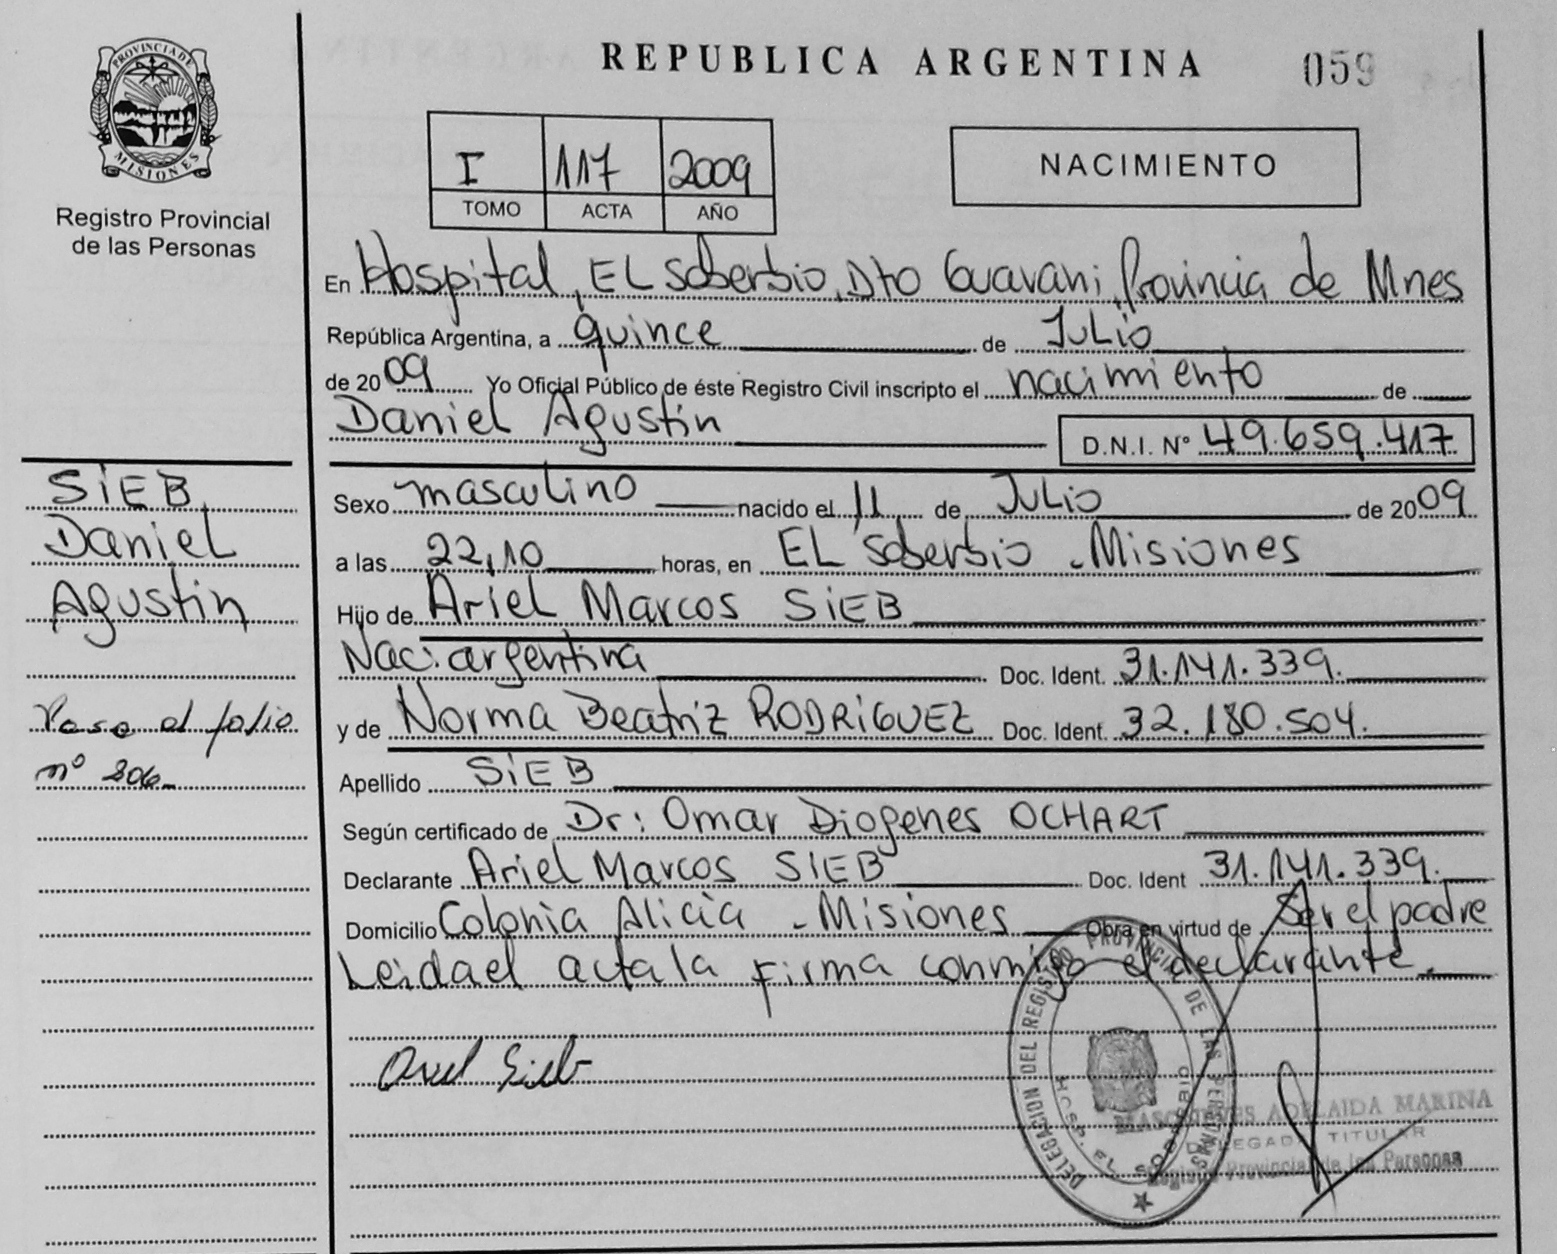 PROVINCIA DE
MISIONES
Registro Provincial
de las Personas
REPUBLICA ARGENTINA 059
I 117 2009
TOMO ACTA AÑO
NACIMIENTO
En Hospital, EL Soberbio, Dto Guarani, Provincia de Mnes
República Argentina, a quince de JuLio
de 2009 Yo Oficial Público de éste Registro Civil inscripto el nacimiento de
Daniel Agustin D.N.I. Nº 49.659.417
Sexo masculino nacido el 11 de JuLio de 2009
a las 22,10 horas, en EL Soberbio - Misiones
Hijo de Ariel Marcos SIEB
Nac. argentina Doc. Ident. 31.141.339.
y de Norma Beatriz RODRIGUEZ Doc. Ident. 32.180.504.
Apellido SIEB
Según certificado de Dr: Omar Diogenes OCHART
Declarante Ariel Marcos SIEB Doc. Ident 31.141.339.
Domicilio Colonia Alicia - Misiones Obra en virtud de Ser el padre
Leida el acta la firma conmigo el declarante.
Ariel Sieb
SIEB
Daniel
Agustin
Pase al folio
nº 206
DELEGACION DEL REGISTRO PROVINCIAL DE LAS PERSONAS
HOSP. EL SOBERBIO
ADELAIDA MARINA
DELEGADA TITULAR
Registro Provincial de las Personas